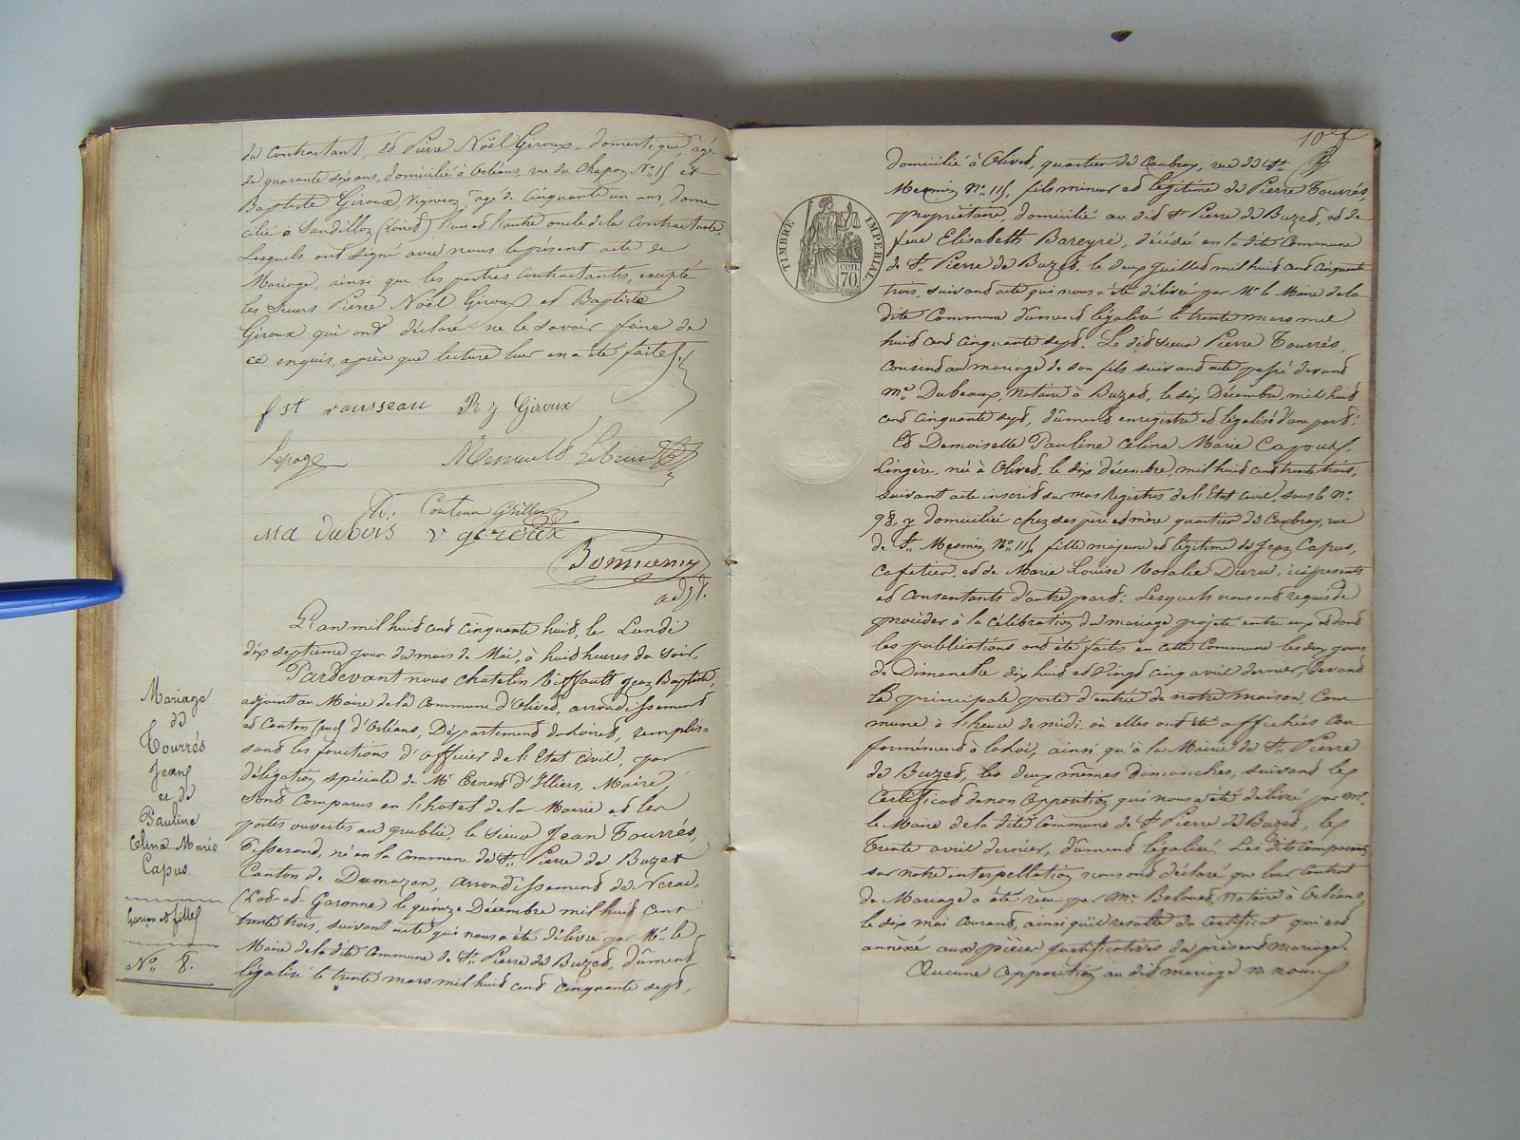 du Contractant, et Pierre Noël Giroux, domestique, âgé
de quarante six ans, domicilié à Orléans, rue du Chapon No. 15 et
Baptiste Giroux vigneron, âgé de cinquante un ans, domi
cilié à Sandillon (Loiret) l'un et l'autre oncle de la Contractante.
Lesquels ont signé avec nous le présent acte de
Mariage, ainsi que les parties Contractantes, excepté
les Sieurs Pierre Noël Giroux et Baptiste
Giroux qui ont déclaré ne le savoir faire de
ce enquis, après que lecture leur en a été faite.
f st rousseau R y Giroux
Lepage
Couteau
Ma dubois v giroux
Bonnamy
adj.t
L'an mil huit cent cinquante huit, le Lundi
dix septième jour du mois de Mai, à huit heures du soir.
Pardevant nous Chatelin Jean Baptiste,
adjoint au Maire de la Commune d'Olivet, arrondissement
et Canton sud d'Orléans, Département du Loiret, remplis-
sant les fonctions d'officier de l'Etat Civil, par
délégation spéciale de Mr Ernest d'Illiers, Maire
Sont comparus en l'hôtel de la Mairie et les
portes ouvertes au public, le Sieur Jean Tourrés,
Tisserand, né en la Commune de St. Pierre de Buzet
Canton de Damazan, arrondissement de Nérac,
(Lot-et-Garonne) le quinze Décembre mil huit cent
trente trois, suivant acte qui nous a été délivré par Mr le
Maire de la dite Commune de St. Pierre de Buzet, dûment
légalisé le trente mars mil huit cent cinquante sept,
Mariage
de
Tourrés
Jean
et de
Pauline
Celina Marie
Capus
Garçon et fille
No. 8.
10
TIMBRE IMPERIAL
70
domicilié à Olivet, quartier du Caubray, rue de St.
Mesmin No. 115, fils mineur et légitime de Pierre Tourrés,
propriétaire, domicilié au dit St Pierre de Buzet, et de
feue Elisabeth Bareyre, décédée en la dite Commune
de St. Pierre de Buzet, le deux juillet mil huit cent cinquante
trois, suivant acte qui nous a été délivré par Mr le Maire de la
dite Commune dûment légalisé le trente mars mil
huit cent cinquante sept. Le dit sieur Pierre Tourrés
consent au mariage de son fils suivant acte passé devant
Me. Dubeaux, Notaire à Buzet, le dix Décembre, mil huit
cent cinquante sept, dûment enregistré et légalisé d'une part:
Et Demoiselle Pauline Celina Marie Capus,
Lingère, née à Olivet, le dix décembre, mil huit cent trente trois,
suivant acte inscrit sur nos Registres de l'Etat Civil, sous le No.
98, y domiciliée chez ses père et mère quartier du Caubray, rue
de St. Mesmin No. 115, fille majeure et légitime de Jean Capus,
Cafetier, et de Marie Louise Rosalie, ici présents
et Consentants d'autre part: Lesquels nous ont requis de
procéder à la célébration du mariage projeté entre eux et dont
les publications ont été faites en cette Commune les deux jours
de Dimanche dix huit et vingt cinq avril dernier, devant
la principale porte d'entrée de notre maison Com-
mune, à l'heure de midi où elles ont été affichées con
formément à la Loi, ainsi qu'à la Mairie de St. Pierre
de Buzet, les deux mêmes dimanches, suivant le
Certificat de non Opposition qui nous a été délivré par Mr.
le Maire de la dite Commune de St Pierre de Buzet, le
trente avril dernier, dûment légalisé. Les dits Comparants
sur notre interpellation nous ont déclaré que leur contrat
de Mariage a été reçu par Me, Notaire à Orléans
le dix mai courant, ainsi qu'il résulte du Certificat qui est
annéxé aux pièces justificatives du présent mariage.
Aucune opposition au dit mariage ne nous